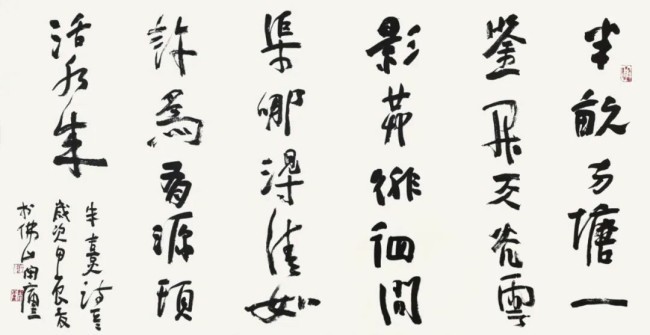 半畝方塘一
鑒開天光雲
影共徘徊問
渠哪得清如
許爲有源頭
活水来
朱熹詩
歲次甲辰夏
於佛山